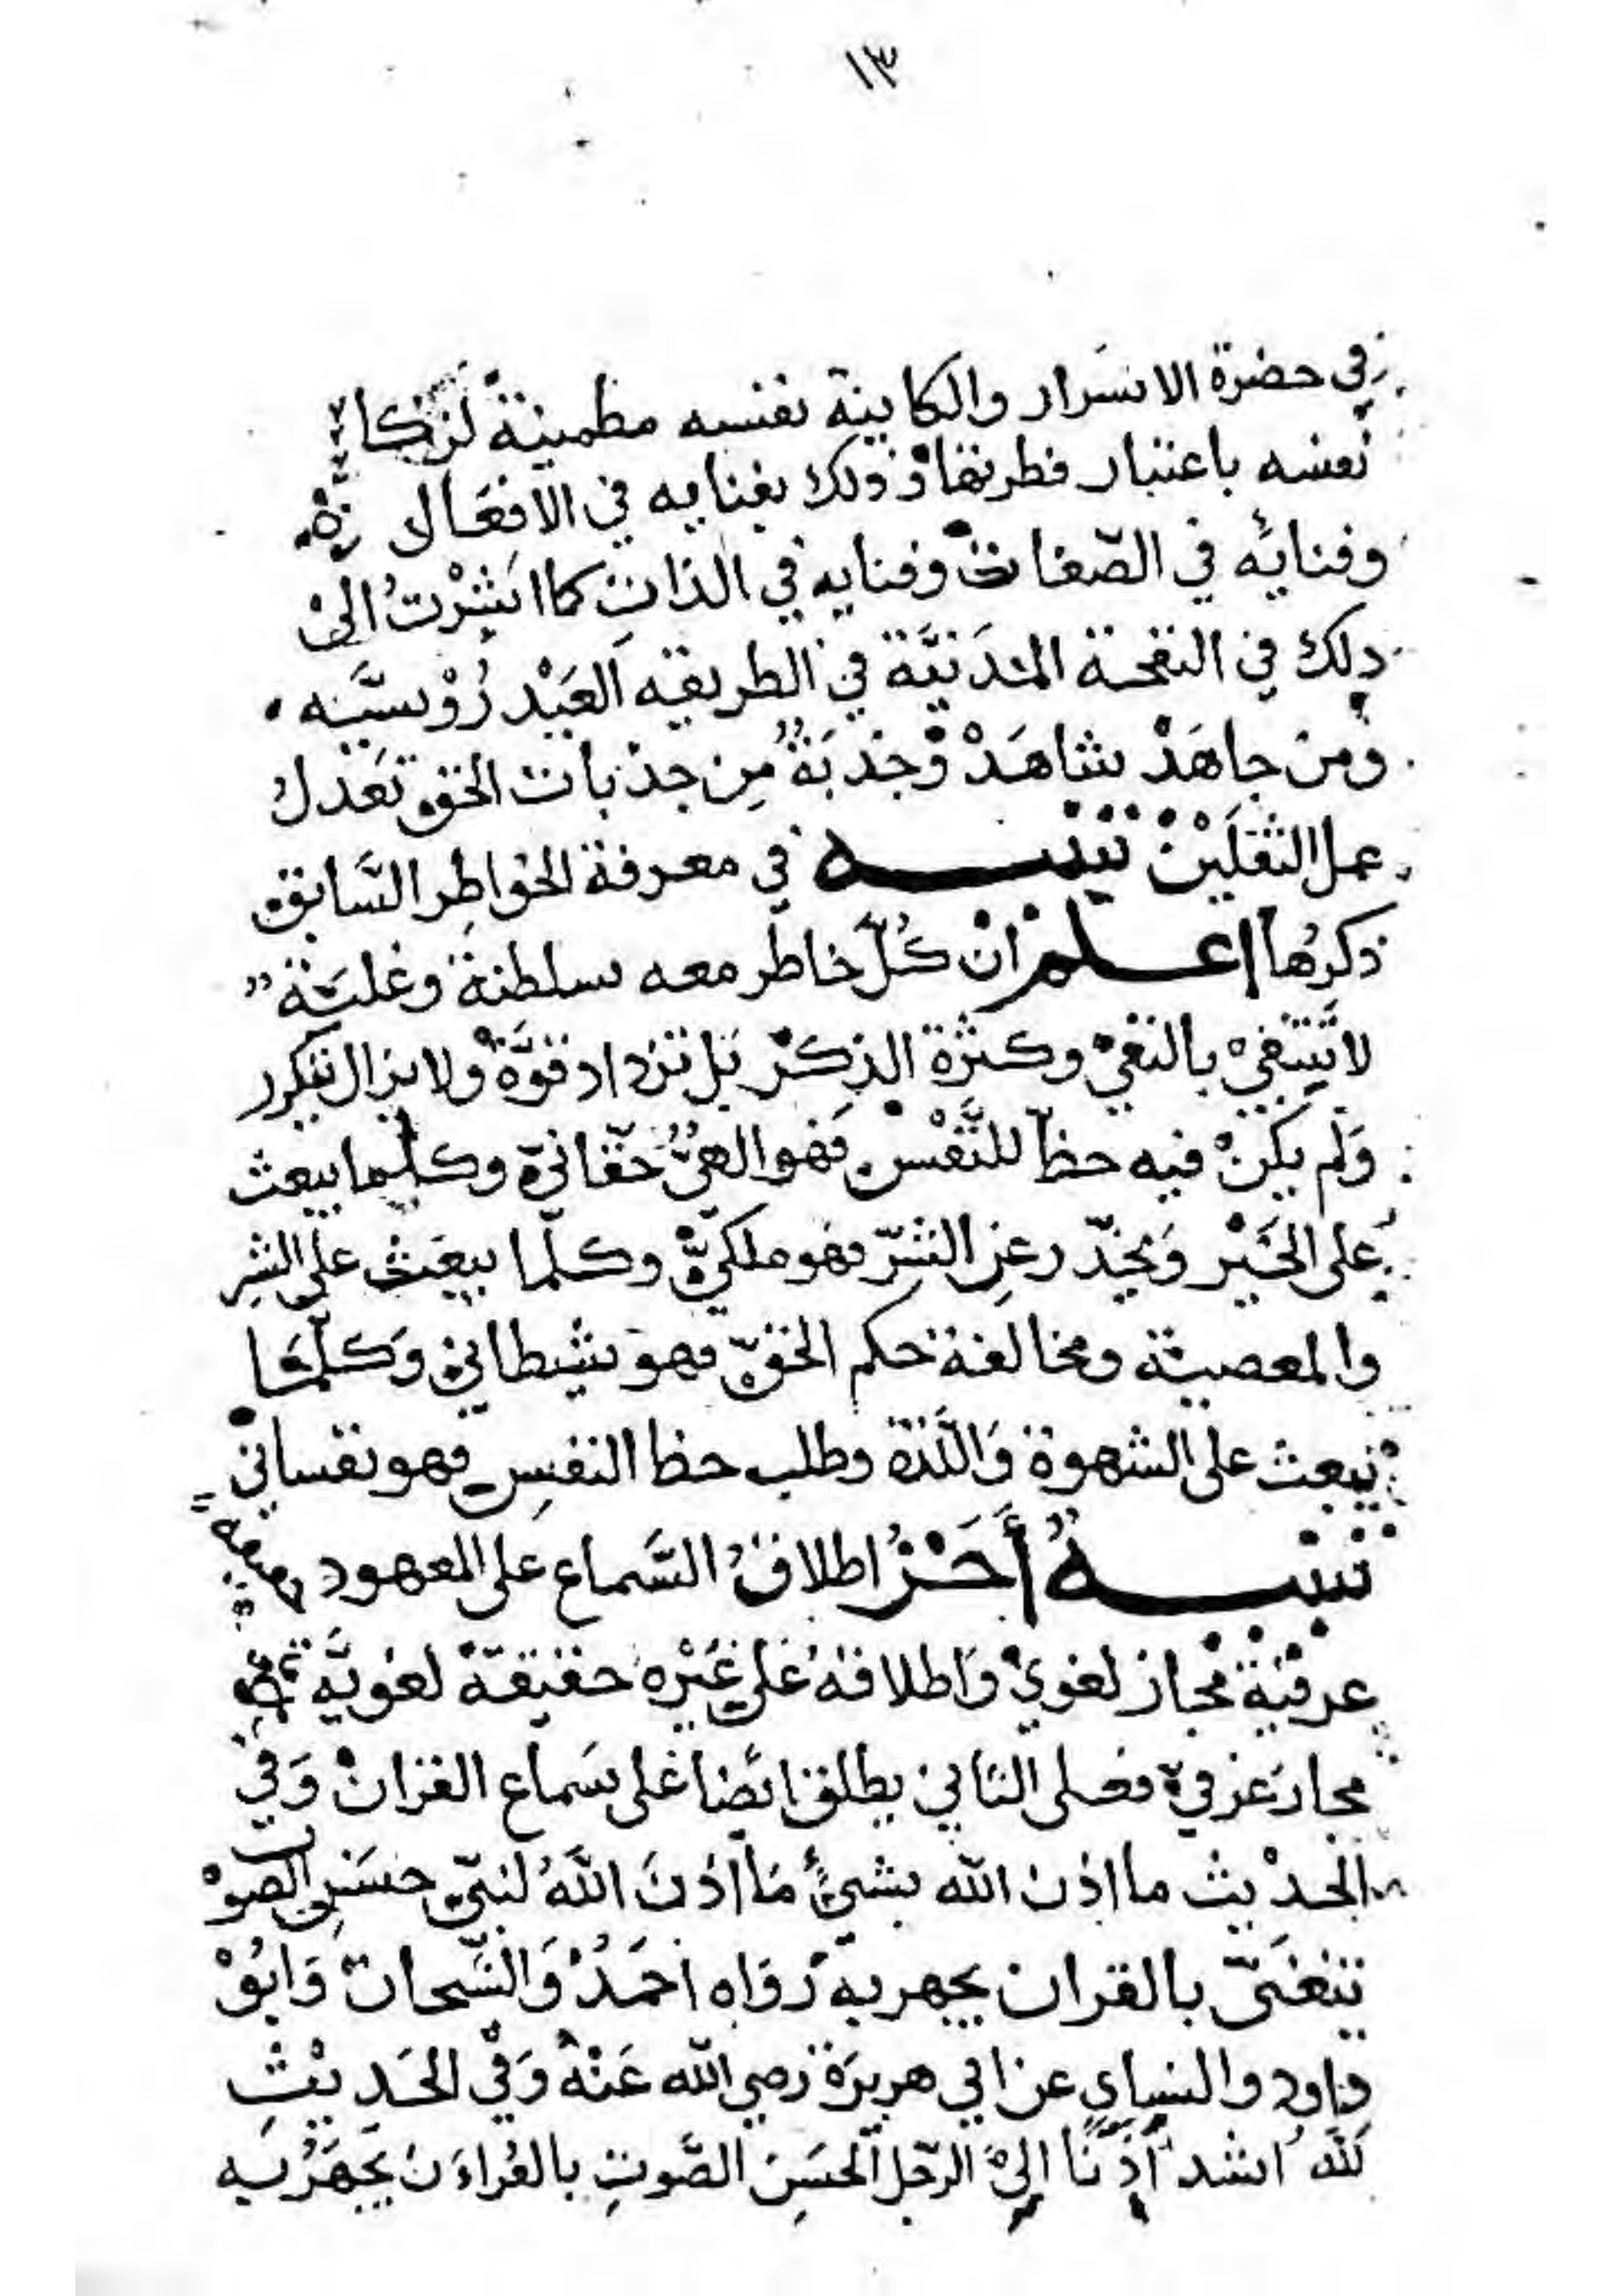 ١٣
في حضرة الاسرار والكاينة نفسه مطمينة لزكاء
نفسه باعتبار فطرتها وذلك بفنايه في الافعال
وفنائه في الصفات وفنايه في الذات كما اشرت الى
ذلك في النفحة المدنية في الطريقه العيدروسيه
ومن جاهد شاهد وجذبة من جذبات الحق تعدل
عمل الثقلين تنبيه في معرفة الخواطر السابق
ذكرها اعلم ان كل خاطر معه سلطنة وغلبة
لا ينتفي بالنفي وكثرة الذكر بل تزداد قوة ولا يزال يتكرر
ولم يكن فيه حظا للنفس فهو الهي حقاني وكلما يبعث
على الخير ويحذر عن الشر فهو ملكي وكلما يبعث على الشر
والمعصية ومخالفة حكم الحق فهو شيطاني وكلما
يبعث على الشهوة واللذة وطلب حظ النفس فهو نفساني
تنبيه أخر اطلاق السماع على المعهود
عرفية مجاز لغوي واطلاقه على غيره حقيقة لغوية
مجاز عرفي فعلى الثاني يطلق ايضا على سماع القران وفي
الحديث ما اذن الله بشئ ما اذن الله لنبي حسن الصوت
يتغنى بالقران يجهر به رواه احمد والشيحان وابو
داود والنساي عن ابي هريرة رضي الله عنه وفي الحديث
لله اشد أذنا الى الرجل الحسن الصوت بالقراءن يجهر به